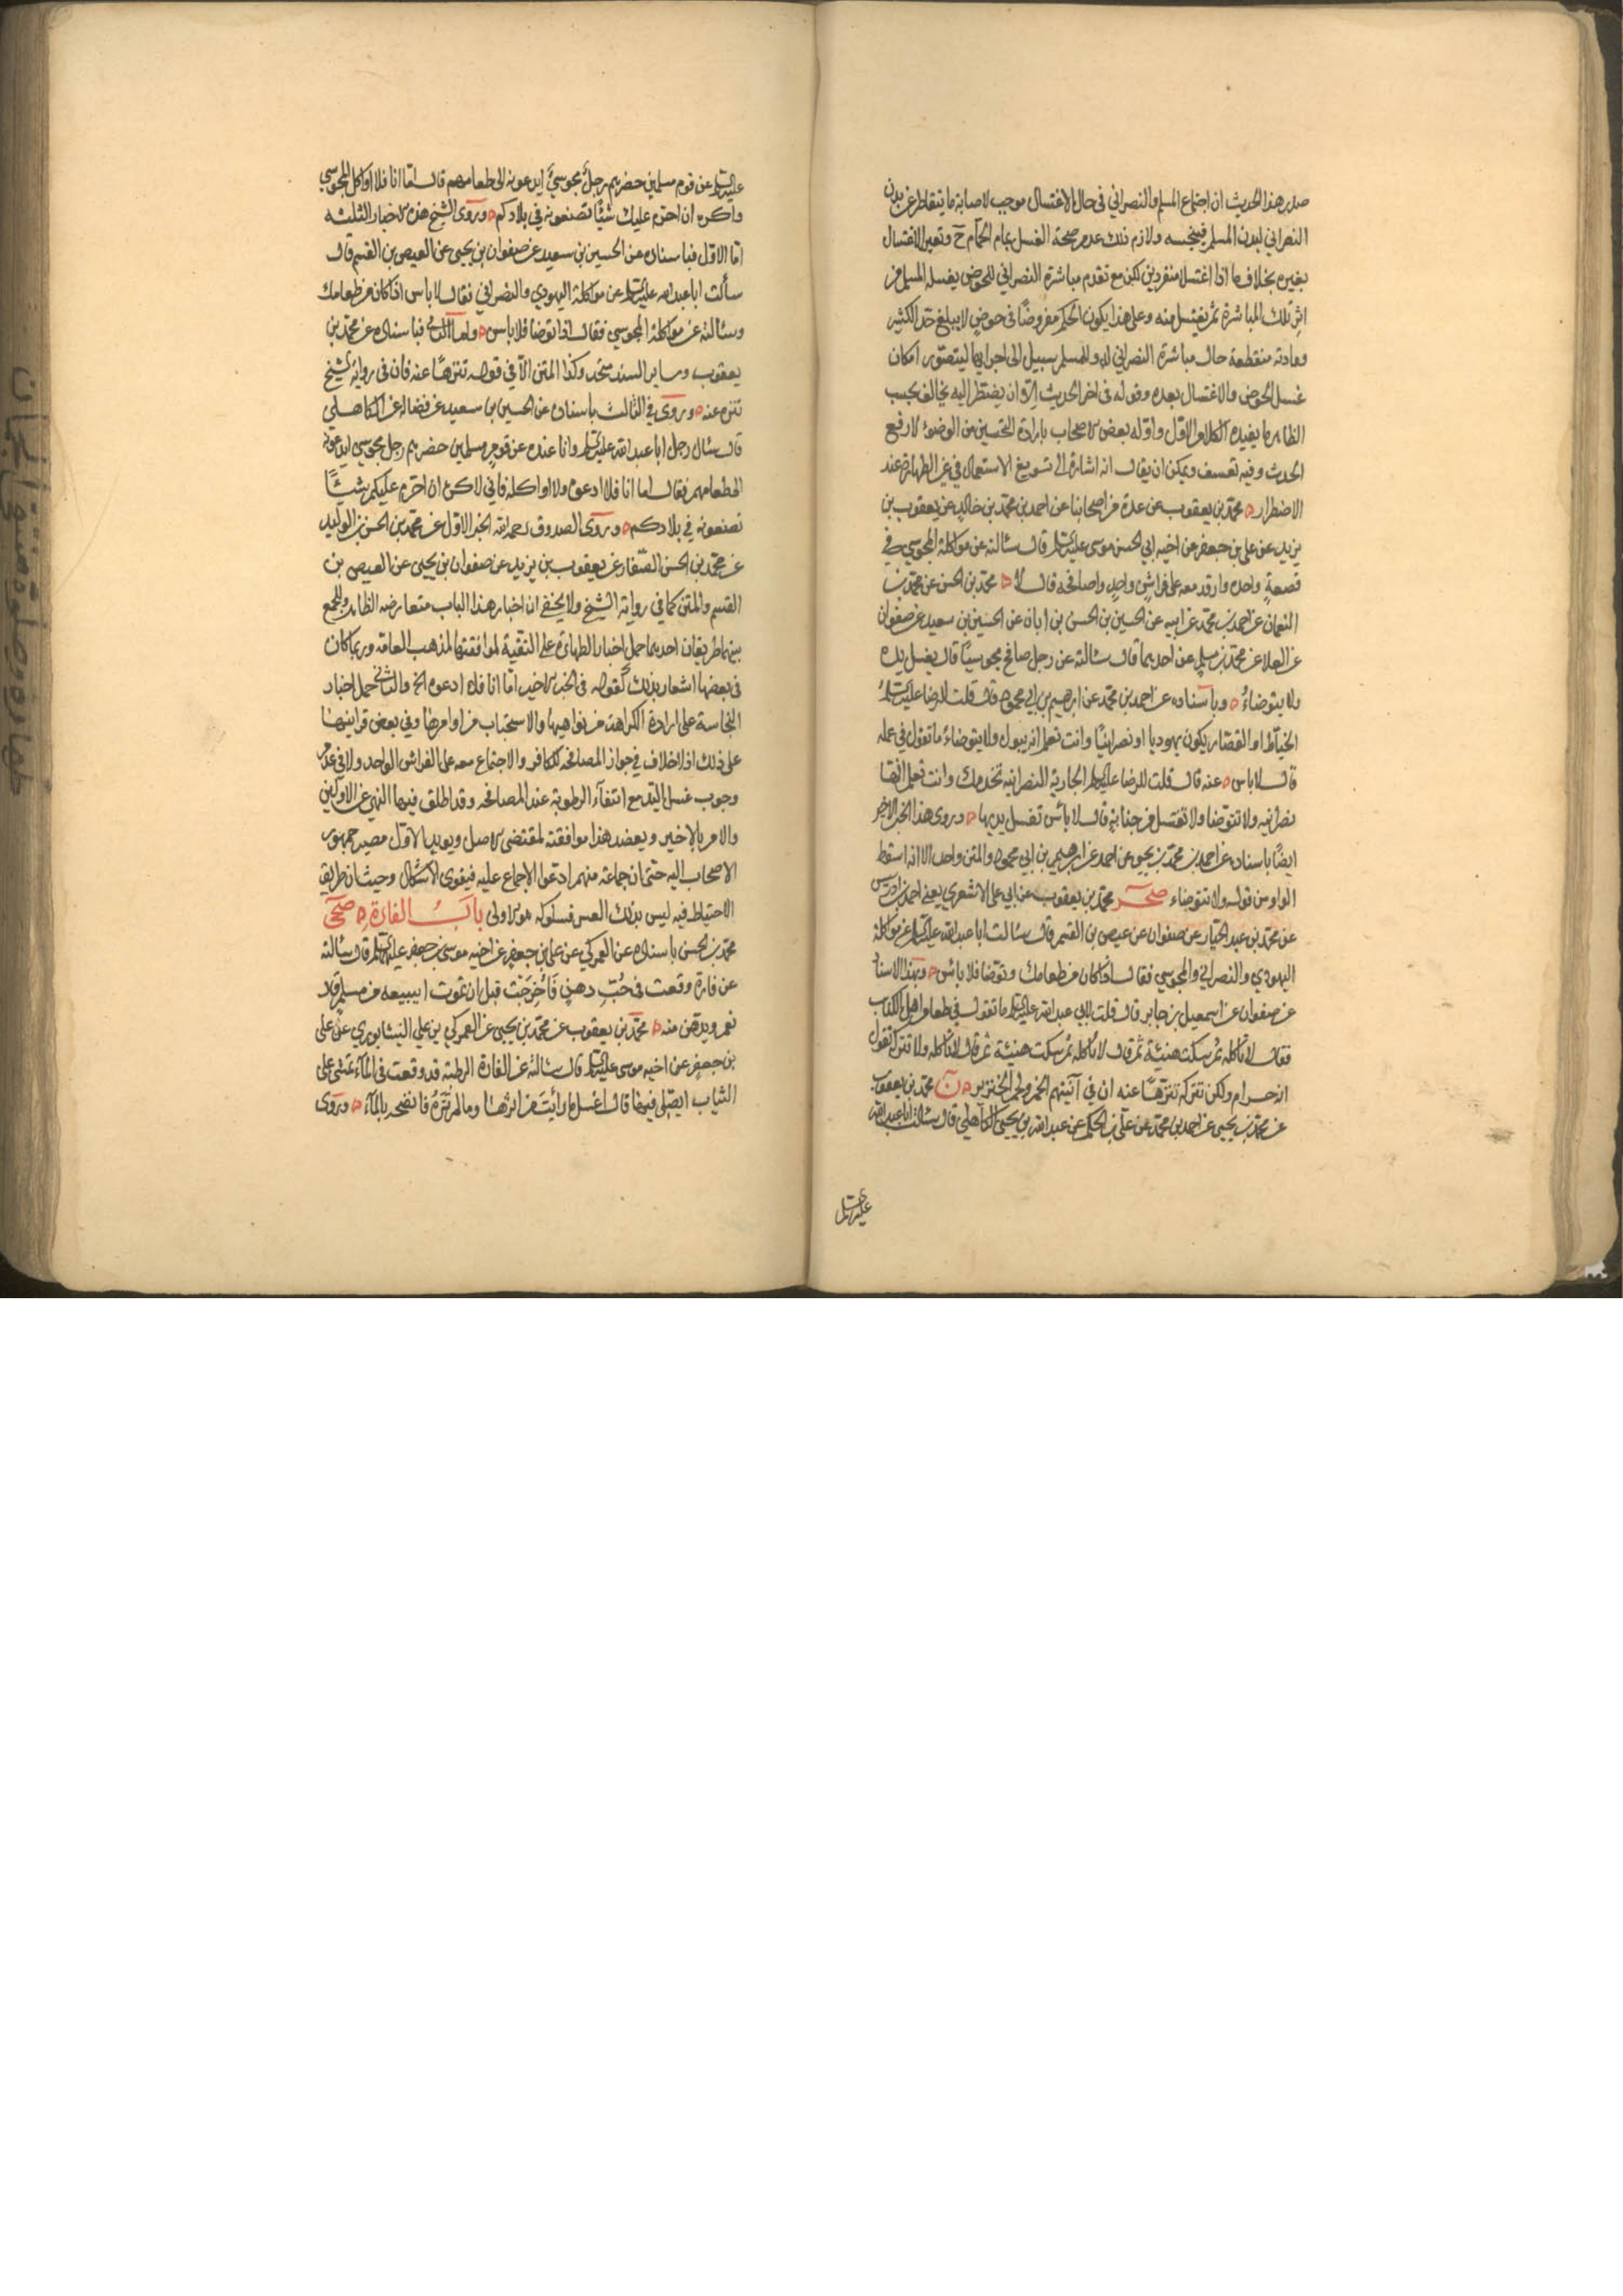 صدر هذا الحديث ان اجتماع المسلم والنصراني في حال الاغتسال موجب لاصابة ما يتقاطر عن بدن
النصراني لبدن المسلم فينجسه ولازم ذلك عدم صحة الغسل بماء الحمام ح وتعين الاغتسال
بغيره بخلاف ما اذا اغتسلا منفردين لكن مع تقدم مباشرة النصراني للحوض يغسله المسلم من
اثر تلك المباشرة ثم يغتسل منه وعلى هذا يكون الحكم مفروضا في حوض لا يبلغ حد الكثير
ومادته منقطعة حال مباشرة النصراني له وللمسلم سبيل الى اجرائها ليتصور امكان
غسل الحوض والاغتسال بعده وقوله في اخر الحديث الا ان يضطر اليه يخالف بحسب
الظاهر ما يفيده الكلام الاول واوله بعض الاصحاب بارادة التحسين من الوضوء لا رفع
الحدث وفيه تعسف ويمكن ان يقال انه اشارة الى تسويغ الاستعمال في غير الطهارة عند
الاضطرار محمد بن يعقوب عن عدة من اصحابنا عن احمد بن محمد بن خالد عن يعقوب بن
يزيد عن علي بن جعفر عن اخيه ابي الحسن موسى عليه السلم قال سئالته عن مواكلة المجوسي في
قصعة واحدة وارقد معه على فراش واحد واصافحه قال لا محمد بن الحسن عن محمد بن
النعمان عن احمد بن محمد عن ابيه عن الحسين بن الحسن بن ابان عن الحسين بن سعيد عن صفوان
عن العلا عن محمد بن مسلم عن احدهما قال سئالته عن رجل صافح مجوسيا قال يغسل يده
ولا يتوضاء وباسناده عن احمد بن محمد عن ابرهيم بن ابي محمود قال قلت للرضا عليه السلم
الخياط او القصار يكون يهوديا او نصرانيا وانت تعلم انه يبول ولا يتوضاء ما تقول في عمله
قال لا باس عنه قال قلت للرضا عليه السلم الجارية النصرانيه تخدمك وانت تعلم انها
نصرانيه ولا تتوضا ولا تغتسل من جنابة قال لا باس تغسل يديها وروى هذا الخبر الاخير
ايضا باسناده عن احمد بن محمد بن يحيى عن احمد عن ابرهيم بن ابي محمود والمتن واحد الا انه اسقط
الواو من قوله ولا تتوضاء صحر محمد بن يعقوب عن ابي علي الاشعري يعني احمد بن ادريس
عن محمد بن عبد الجبار عن صفوان عن عيص بن القسم قال سئالت ابا عبد الله عليه السلم عن مواكلة
اليهودي والنصراني والمجوسي فقال اذا كان من طعامك وتوضا فلا باس وبهذا الاسناد
عن صفوان عن اسمعيل بن جابر قال قلت لابي عبد الله عليه السلم ما تقول في طعام اهل الكتاب
فقال لا تاكله ثم سكت هنيئة ثم قال لا تاكله ثم سكت هنيئة ثم قال لا تاكله ولا تتركه تقول
انه حرام ولكن تتركه تنزها عنه ان في آنيتهم الخمر ولحم الخنزير ن محمد بن يعقوب
عن محمد بن يحيى عن احمد بن محمد عن علي بن الحكم عن عبد الله بن يحيى الكاهلي قال سئالت ابا عبد الله
عليه السلم
عليه السلم عن قوم مسلمين حضرهم رجل مجوسي ايدعونه الى طعامهم قال اما انا فلا اواكل المجوسي
واكره ان احرم عليك شيئا تصنعونه في بلادكم وروى الشيخ هذه الاخبار الثلثه
اما الاول فباسناده عن الحسين بن سعيد عن صفوان بن يحيى عن العيص بن القسم قال
سألت ابا عبد الله عليه السلم عن مواكلة اليهودي والنصراني فقال لا باس اذا كان من طعامك
وسئالته عن مواكلة المجوسي فقال اذا توضا فلا باس واما الثاني فباسناده عن محمد بن
يعقوب وساير السند متحد وكذا المتن الا في قوله تنزها عنه فان في رواية الشيخ
تنزه عنه وروى في الثالث باسناده عن الحسين بن سعيد عن فضالة عن الكاهلي
قال سئال رجل ابا عبد الله عليه السلم وانا عنده عن قوم مسلمين حضرهم رجل مجوسي ايدعونه
الى طعامهم فقال اما انا فلا ادعوه ولا اواكله فاني لاكره ان احرم عليكم شيئا
تصنعونه في بلادكم وروى الصدوق رحمه الله الخبر الاول عن محمد بن الحسن بن الوليد
عن محمد بن الحسن الصفار عن يعقوب بن يزيد عن صفوان بن يحيى عن العيص بن
القسم والمتن كما في رواية الشيخ ولا يخفى ان اخبار هذا الباب متعارضه الظاهر وللجمع
بينهما طريقان احدهما حمل اخبار الطهارة على التقية لموافقتها لمذهب العامه وربما كان
في بعضها اشعار بذلك كقوله في الخبر الاخير اما انا فلا ادعوه الخ والثاني حمل اخبار
النجاسة على ارادة الكراهة من نواهيها والاستحباب من اوامرها وفي بعض قراينها
على ذلك اذ لا خلاف في جواز المصافحه للكافر والاجتماع معه على الفراش الواحد ولا في عدم
وجوب غسل اليد مع انتفاء الرطوبة عند المصافحه وقد اطلق فيها النهي عن الاولين
والامر بالاخير ويعضد هذا موافقته لمقتضى الاصل ويعيد الاول مصير جمهور
الاصحاب اليه حتى ان جماعة منهم ادعوا الاجماع عليه فيقوى الاشكال وحيث ان طريق
الاحتياط فيه ليس بذلك العسر فسلوكه هو الاولى باب الفارة صحى
محمد بن الحسن باسناده عن العمركي عن علي بن جعفر عن اخيه موسى بن جعفر عليهما السلم قال سئالته
عن فارة وقعت في حب دهن فاخرجت قبل ان تموت ايبيعه من مسلم قال
نعم ويدهن منه محمد بن يعقوب عن محمد بن يحيى عن العمركي بن علي النيشابوري عن علي
بن جعفر عن اخيه موسى عليه السلم قال سئالته عن الفارة الرطبة قد وقعت في الماء تمشي على
الثياب ايصلي فيها قال اغسل ما رايت من اثرها وما لم تره فانضحه بالماء وروى